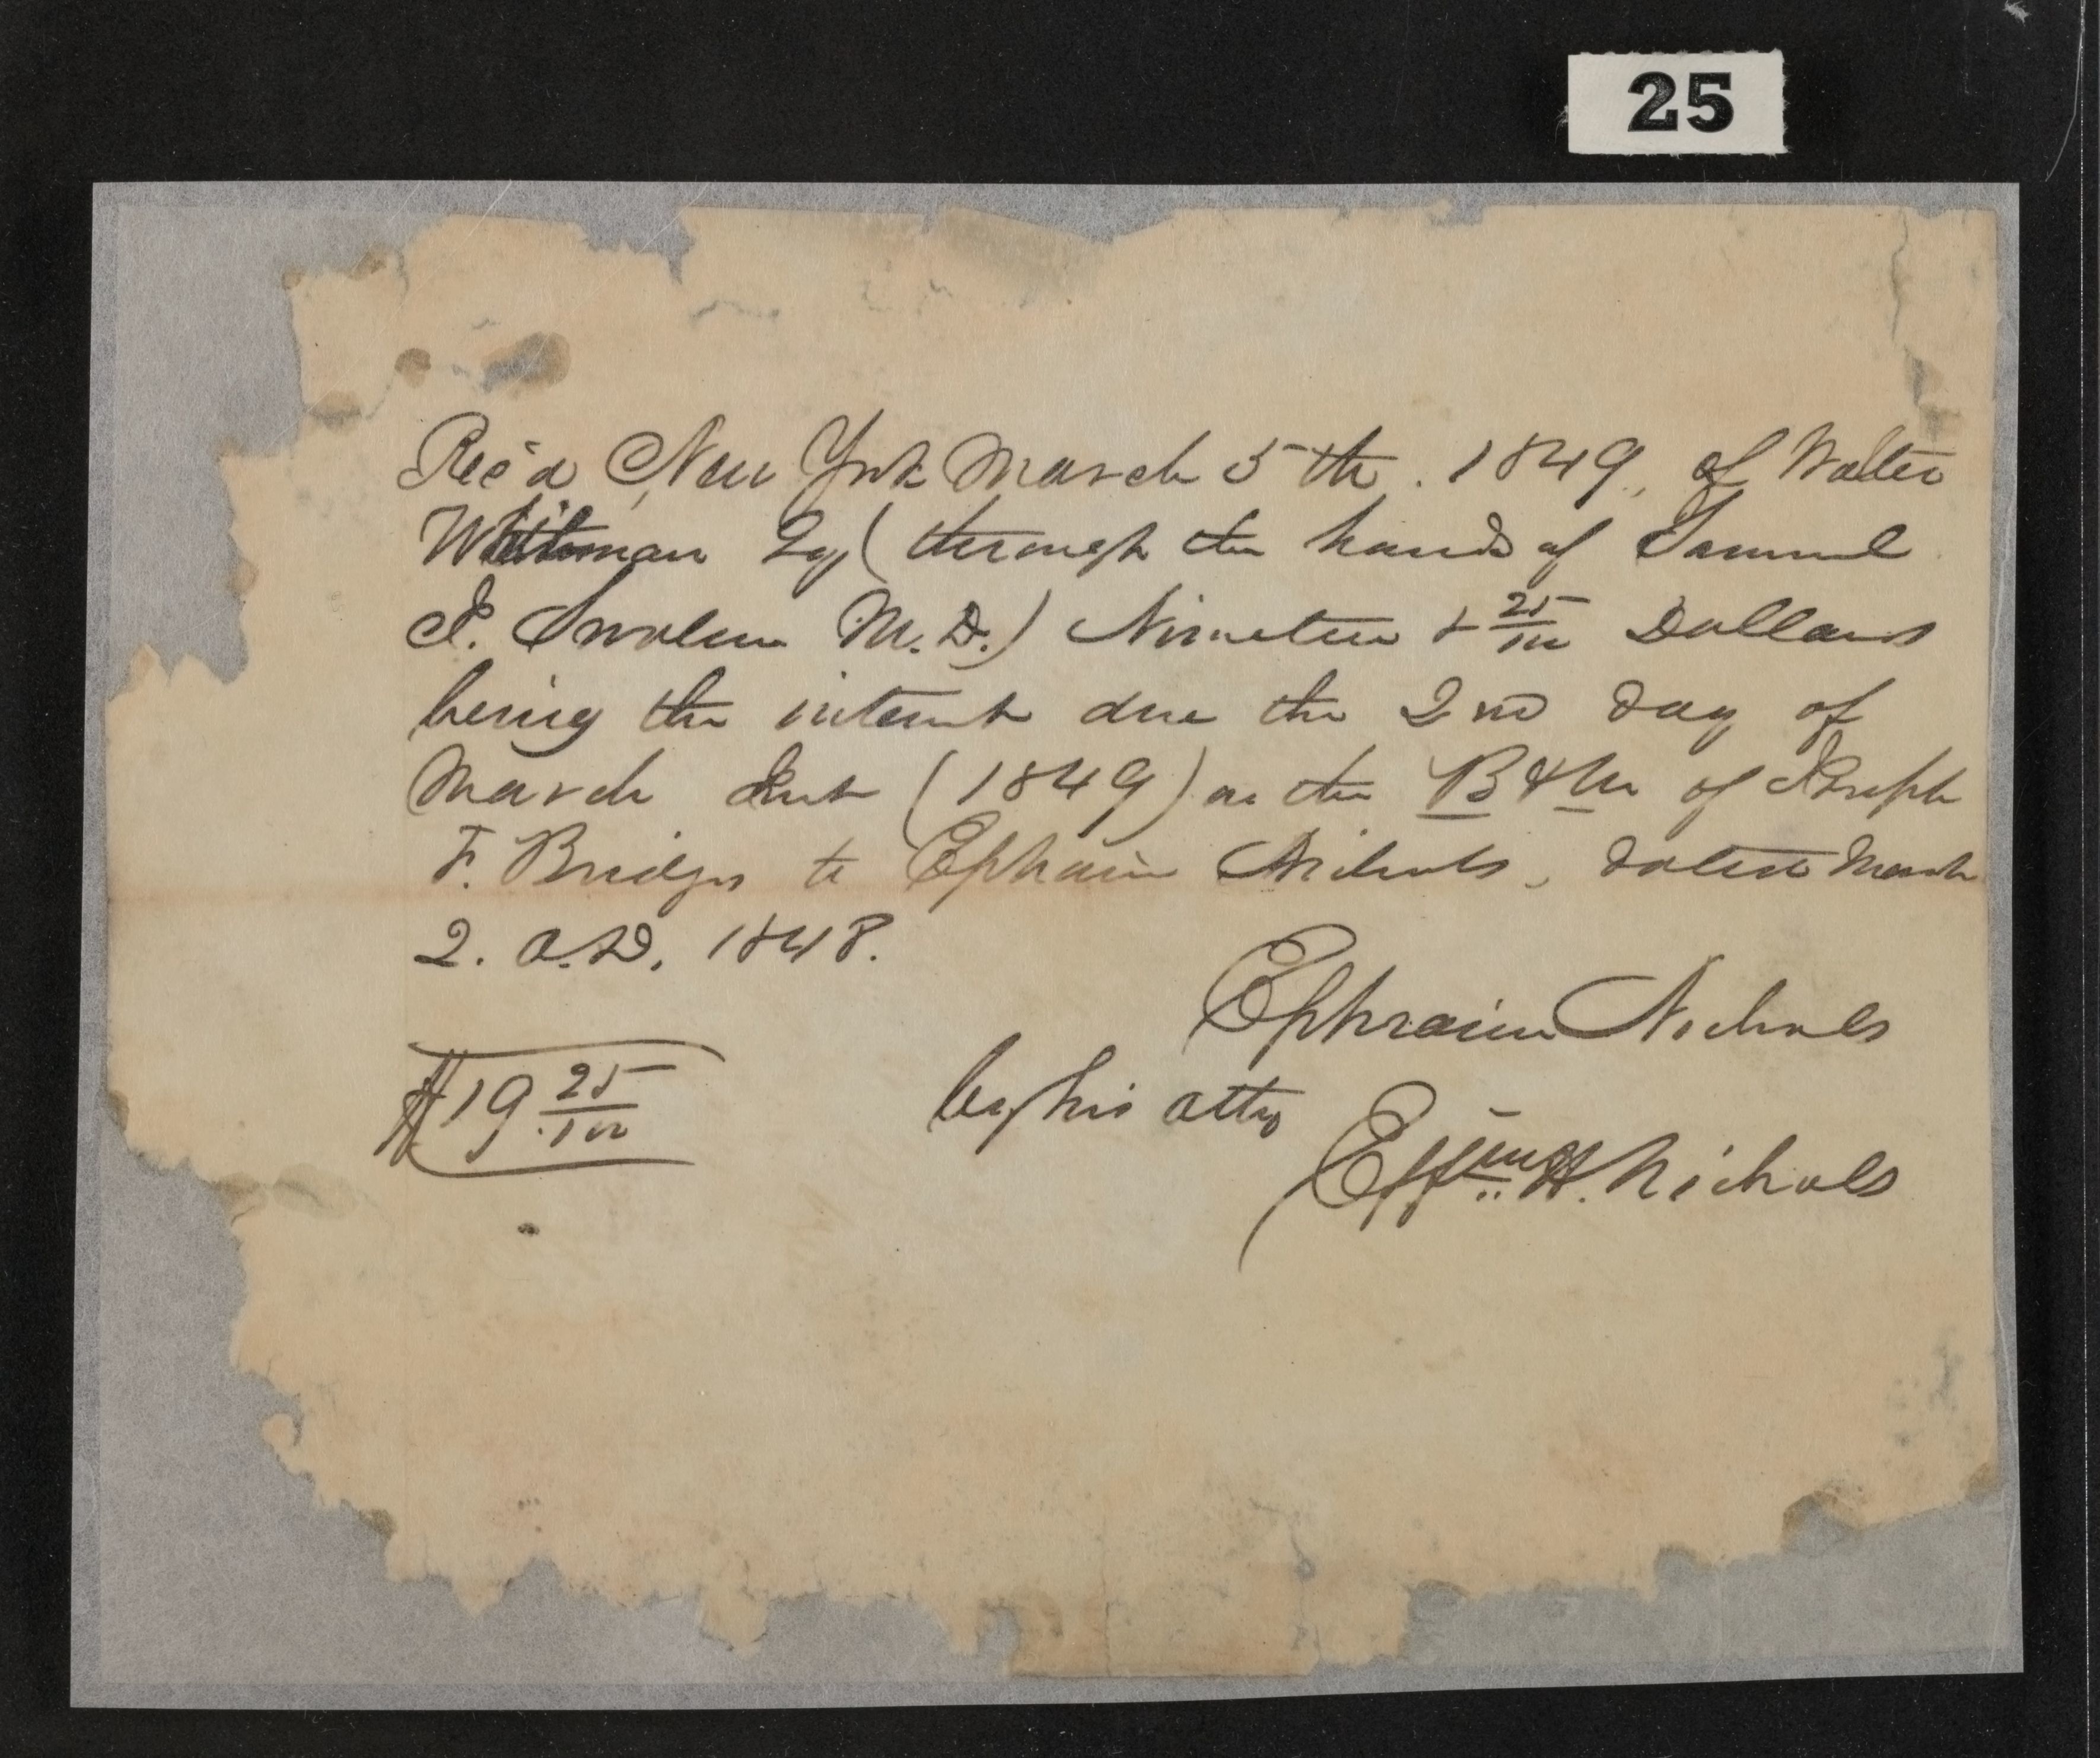 25
Rec'd New York March 5th. 1849, of Walter
Whitman Esq (through the hands of Samuel
J. M.D.) Nineteen & 25/100 Dollars
being the interest due the 2nd day of
March (1849) on the B & M of Joseph
F. Bridges to Ephraim Nichols, dated March
2. A.D. 1848.
Ephraim Nichols
$19 25/100 by his atty
H. Nichols